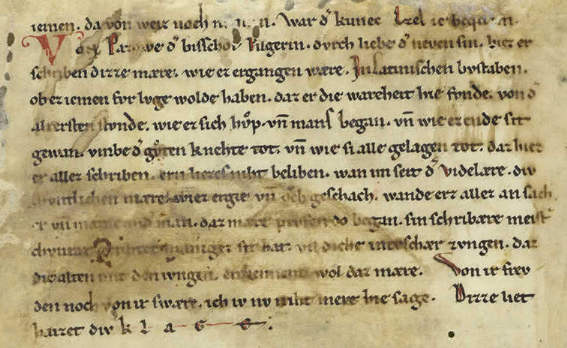 iemen. da von weiz noch War d͛ kunec Ezel ie
Von Pazowe d͛ bisschof pilgerin. dvrch liebe d͛ neven sin. hiez er
schriben dizze mære. wie ez ergangen wære. In latinischen bvstaben.
ob ez iemen fvr lvge wolde haben. daz er die warcheit hie fvnde. von d͛
alrersten stvnde. wie ez sich hvͦp. vn̄ mans began. vn̄ wie ez ende
gewan. vmbe d͛ gvͦten knehte not. vn̄ wie si alle gelagen tot. daz hiez
er allez schriben. ern liez es niht beliben. wan im seit d͛ videlære. div
chvntlichen mære. wi ez ergie vn̄ och geschach. wande erz allez an sach
er vn̄ manic and͛ man. daz mære prieven do began. sin schribære meist͛
chvnrat. getihtet sit hat. vil diche zvngen. daz
die alten mit den ivngen. erchennent wol daz mære. Von ir frev
den noch von ir swære. ich iv nv niht mere hie sage. Dizze liet
haizet div klage: